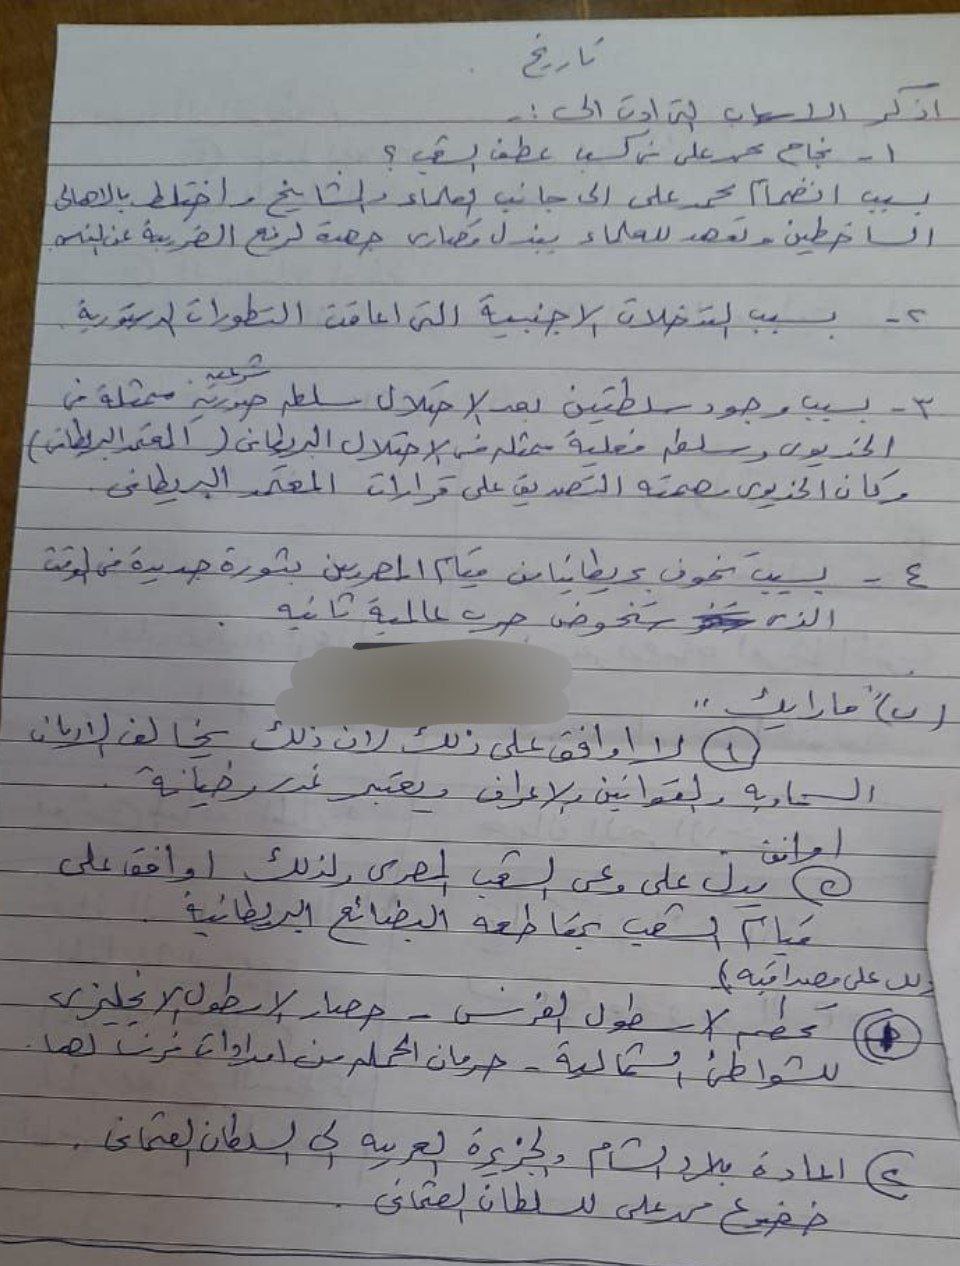 تاريخ
اذكر الاسباب التى ادت الى :-
١- نجاح محمد على فى كسب عطف الشعب ؟
بسبب انضمام محمد على الى جانب العلماء والمشايخ واختلط بالاهالى
الساخطين وتعهد للعلماء ببذل قصارى جهده لرفع الضريبة عن الناس
٢- بسبب التدخلات الاجنبية التى اعاقت التطورات الدستورية
شرعيه
٣- بسبب وجود سلطتين بعد الاحتلال سلطه صورية ممثلة فى
الخديوى وسلطه فعلية ممثله فى الاحتلال البريطانى (المعتمد البريطانى)
وكان الخديوى مهمته التصديق على قرارات المعتمد البريطانى
٤- بسبب تخوف بريطانيا من قيام المصريين بثورة جديدة فى الوقت
الذى ستخوض حرب عالمية ثانيه .
(ب) "ما رايك"
١ لا اوافق على ذلك لان ذلك يخالف الاديان
السماويه والقوانين والاعراف ويعتبر غدر وخيانة .
اوافق
٢ يدل على وعى الشعب المصرى ولذلك اوافق على
قيام الشعب بمقاطعه البضائع البريطانية .
دلل على مصداقيه)
١ تحطم الاسطول الفرنسى - حصار الاسطول الانجليزى
للشواطئ الشمالية - حرمان الحمله من امدادات فرنسا لها .
٢ اعادة بلاد الشام والجزيرة العربيه الى السلطان العثمانى .
خضوع محمد على للسلطان العثمانى .